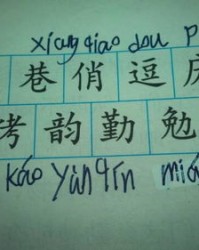 xiàng qiào dou p
巷 俏 逗
考 韵 勤 勉
káo yùn qín miá